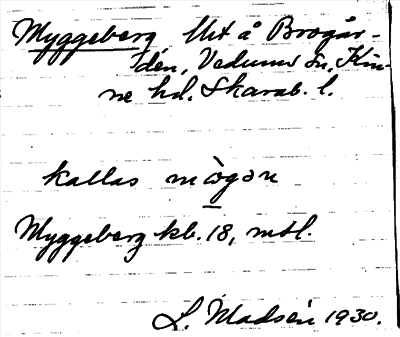 Myggeberg Utt å Brogår-
den, Vedums sn, Kin-
ne hd. Skarab. l.
kallas mògən
Myggeberg kb. 18, mtl.
L. Madsén 1930.